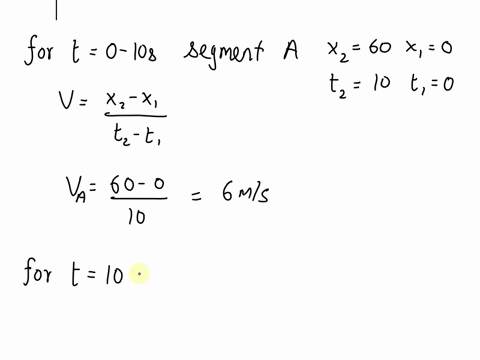 for t = 0-10s segment A x₂ = 60 x₁ = 0
t₂ = 10 t₁ = 0
V = x₂ - x₁ / t₂ - t₁
V_A = 60 - 0 / 10 = 6 m/s
for t = 10